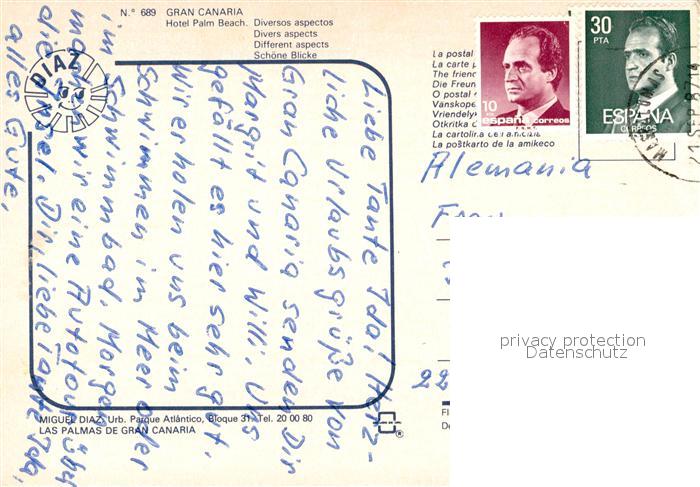 N.º 689 GRAN CANARIA
Hotel Palm Beach. Diversos aspectos
Divers aspects
Different aspects
Schöne Blicke
DIAZ
Liebe Tante Ida! Herz-
liche Urlaubsgrüße von
Gran Canaria senden Dir
Margit und Willi. Uns
gefällt es hier sehr gut.
Wir erholen uns beim
Schwimmen im Meer oder
im Schwimmbad. Morgen
machen wir eine Autotour über
die Insel. Dir, liebe Tante Ida,
alles Gute,
MIGUEL DIAZ. Urb. Parque Atlántico, Bloque 31. Tel. 20 00 80
LAS PALMAS DE GRAN CANARIA
10
españa correos
30
PTA
ESPAÑA
CORREOS
La postal
La carte
The friend
Die Freun
O postal
Vanskope
Vriendely
Otkritka
La cartolina
La poŝtkarto de la amikeco
Alemania
22
privacy protection
Datenschutz